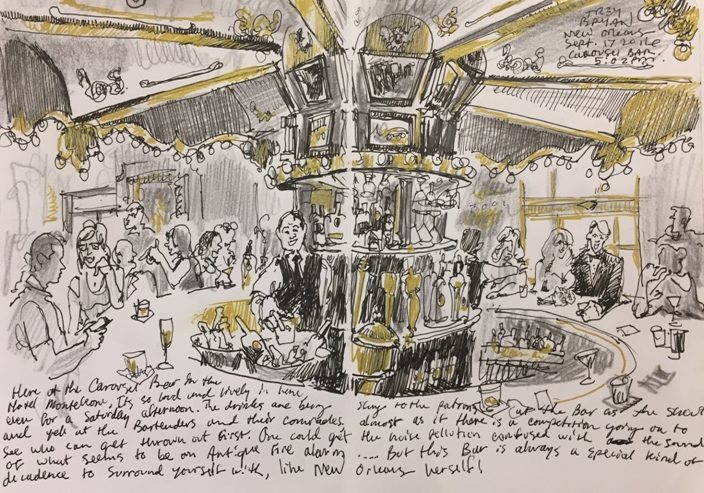 BRYAN
NEW ORLEANS
SEPT. 17 2016
CAROUSEL BAR
5:02 PM
Here at the Carousel Bar in the
Hotel Monteleone, Its so loud and lively in here
even for a Saturday afternoon. The drinks are being slung to the patrons at the Bar as they
and yell at the Bartenders and their comrades almost as if there is a competition going on to
see who can get thrown out first. One could get the noise pollution confused with the sound
of what seems to be an Antique Fire alarm .... But this Bar is always a special kind of
decadence to surround yourself with, like New Orleans herself!